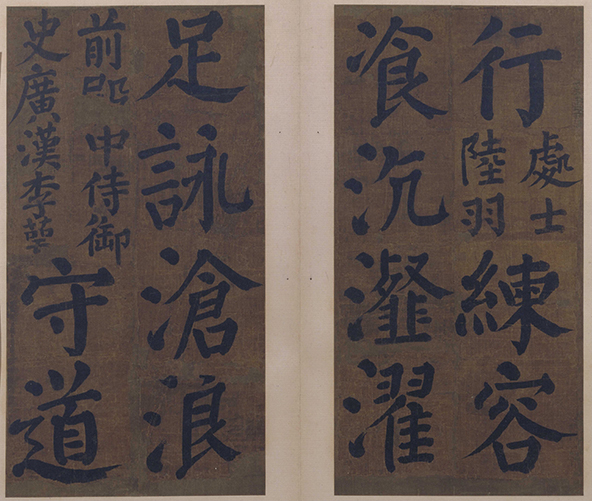 行處士陸羽練容
飡沆瀣濯
足詠滄浪
前中侍御
史廣漢李萼
守道